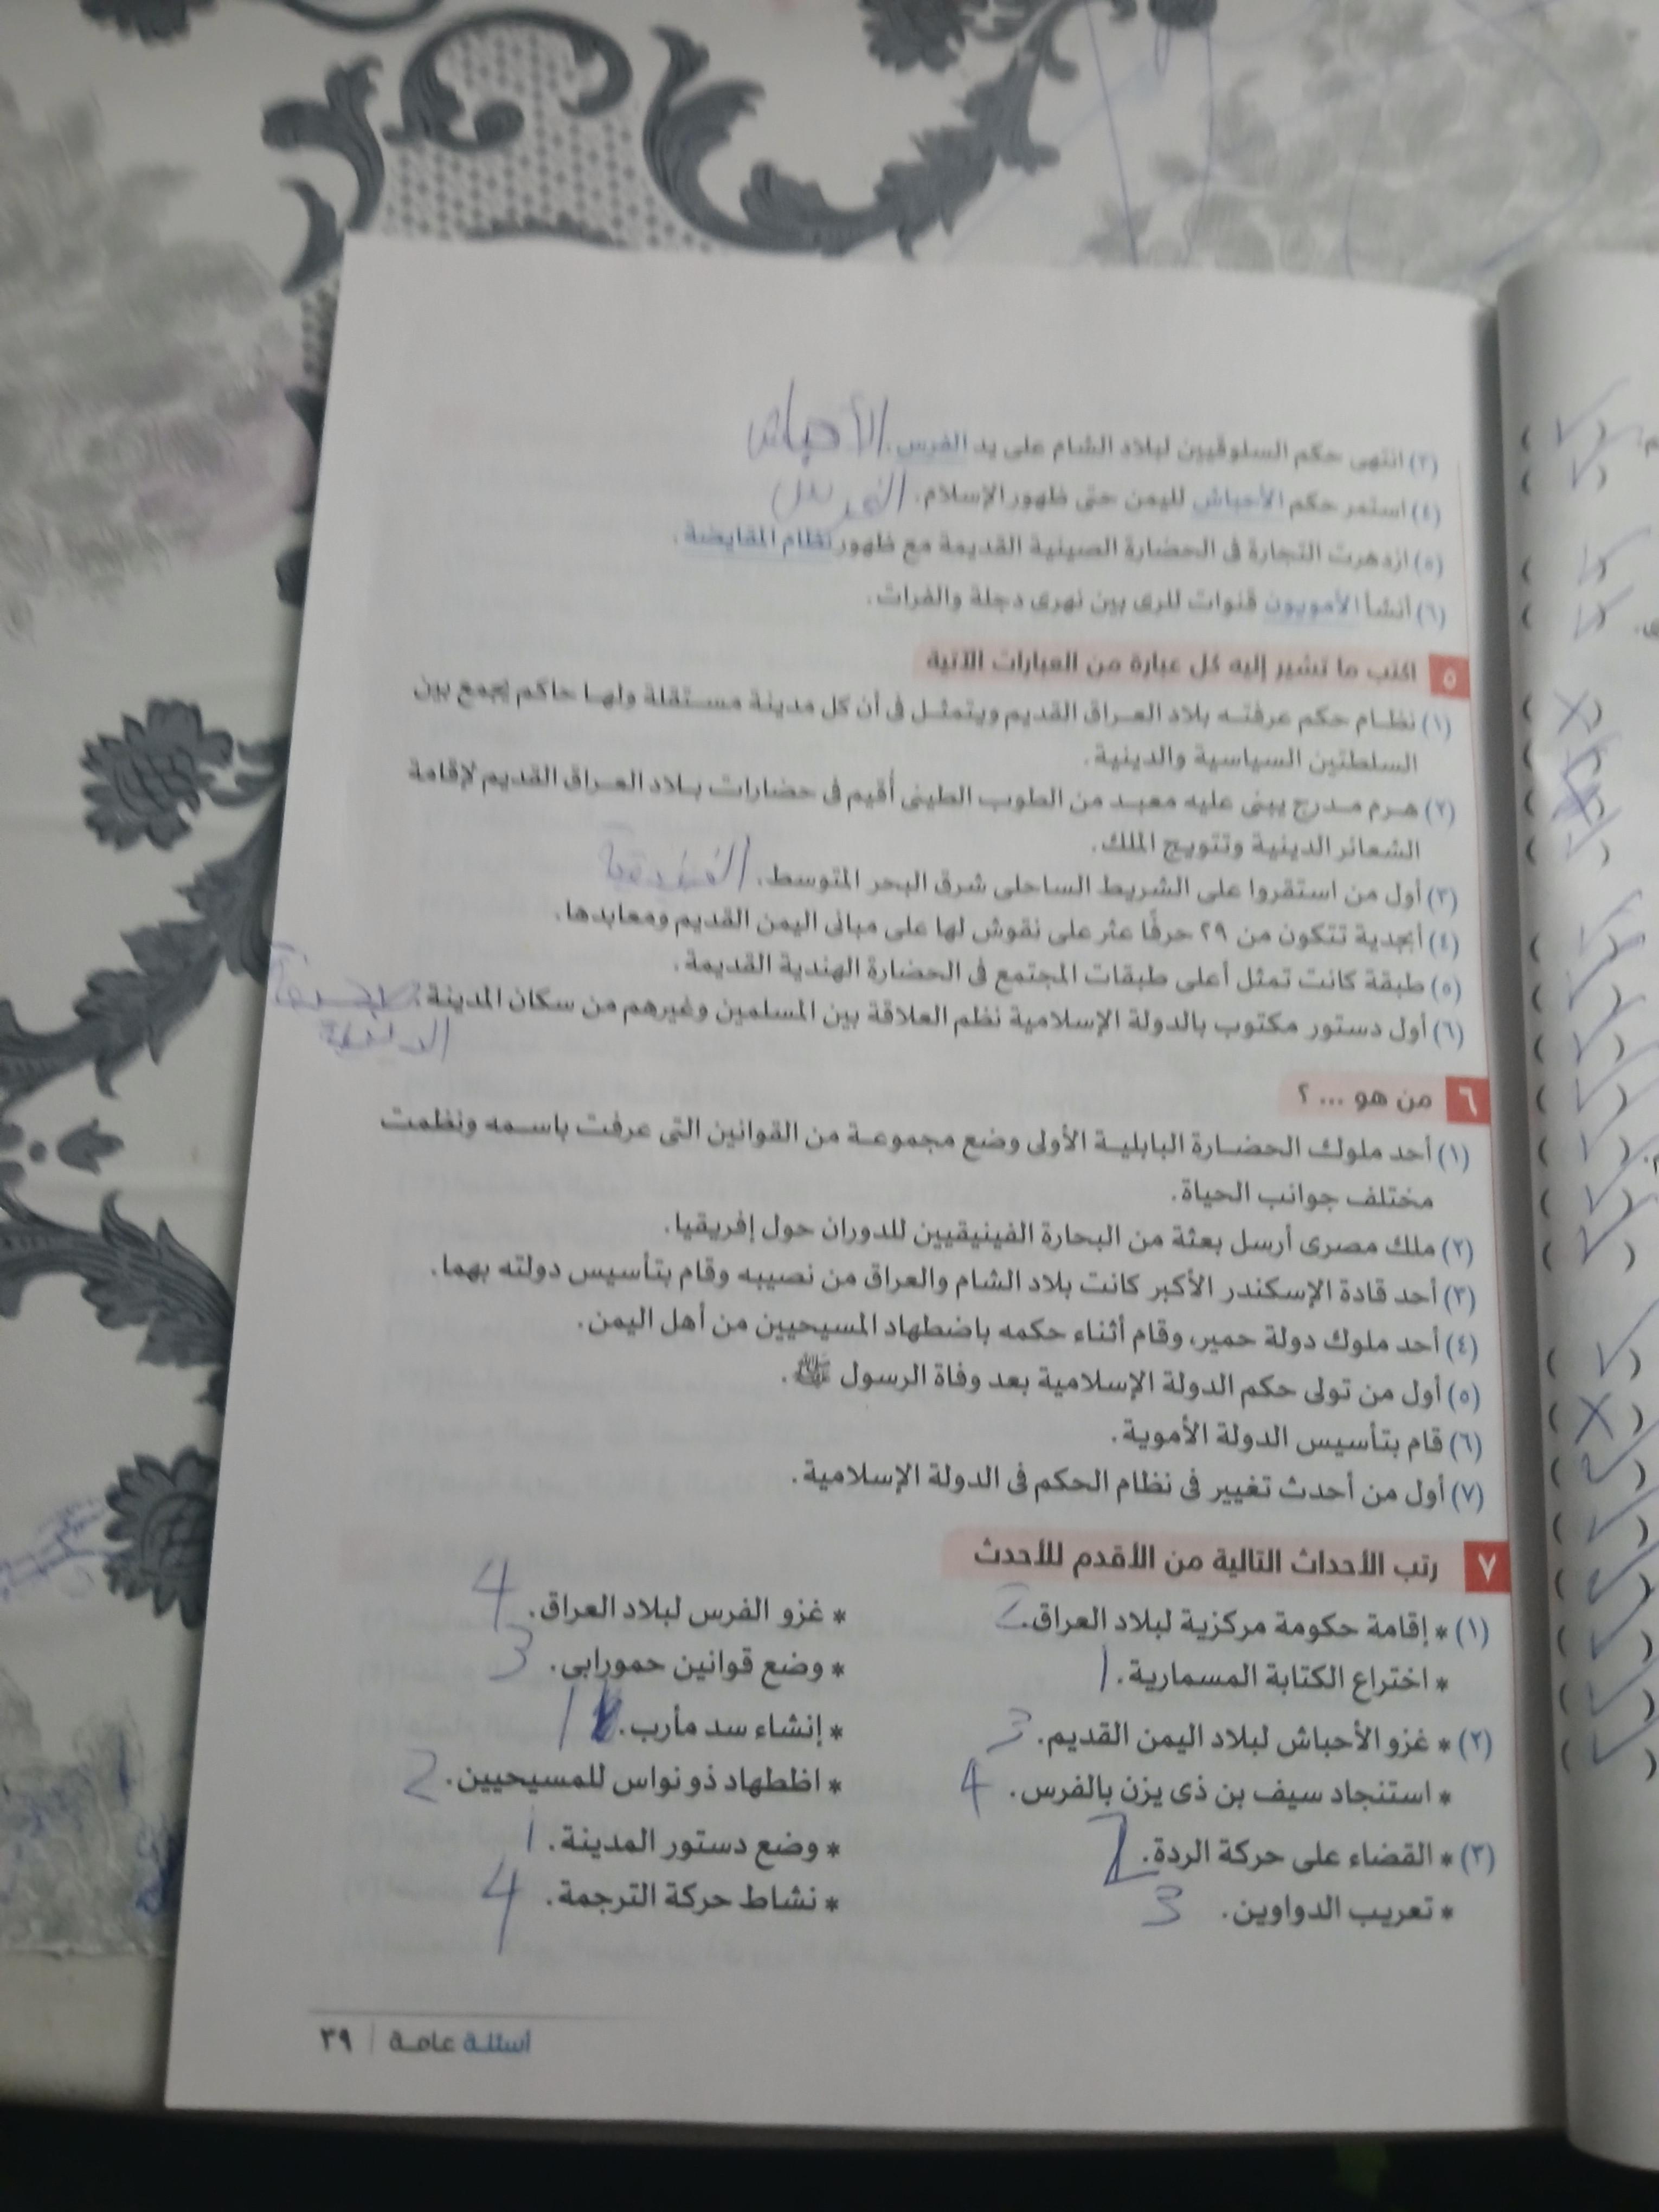 (٣) انتهى حكم السلوقيين لبلاد الشام على يد الفرس. الأحباش
(٤) استمر حكم الأحباش لليمن حتى ظهور الإسلام. الفرس
(٥) ازدهرت التجارة فى الحضارة الصينية القديمة مع ظهور نظام المقايضة.
(٦) أنشأ الأمويون قنوات للرى بين نهرى دجلة والفرات.
٥ اكتب ما تشير إليه كل عبارة من العبارات الآتية
(١) نظام حكم عرفته بلاد العراق القديم ويتمثل فى أن كل مدينة مستقلة ولها حاكم يجمع بين
السلطتين السياسية والدينية.
(٢) هرم مدرج يبنى عليه معبد من الطوب الطينى أُقيم فى حضارات بلاد العراق القديم لإقامة
الشعائر الدينية وتتويج الملك.
(٣) أول من استقروا على الشريط الساحلى شرق البحر المتوسط.
(٤) أبجدية تتكون من ٢٩ حرفًا عثر على نقوش لها على مبانى اليمن القديم ومعابدها.
(٥) طبقة كانت تمثل أعلى طبقات المجتمع فى الحضارة الهندية القديمة.
(٦) أول دستور مكتوب بالدولة الإسلامية نظم العلاقة بين المسلمين وغيرهم من سكان المدينة.
٦ من هو ... ؟
(١) أحد ملوك الحضارة البابلية الأولى وضع مجموعة من القوانين التى عرفت باسمه ونظمت
مختلف جوانب الحياة.
(٢) ملك مصرى أرسل بعثة من البحارة الفينيقيين للدوران حول إفريقيا.
(٣) أحد قادة الإسكندر الأكبر كانت بلاد الشام والعراق من نصيبه وقام بتأسيس دولته بهما.
(٤) أحد ملوك دولة حمير، وقام أثناء حكمه باضطهاد المسيحيين من أهل اليمن.
(٥) أول من تولى حكم الدولة الإسلامية بعد وفاة الرسول ﷺ.
(٦) قام بتأسيس الدولة الأموية.
(٧) أول من أحدث تغيير فى نظام الحكم فى الدولة الإسلامية.
٧ رتب الأحداث التالية من الأقدم للأحدث
(١) * إقامة حكومة مركزية لبلاد العراق. 2 * غزو الفرس لبلاد العراق. 4
* اختراع الكتابة المسمارية. 1 * وضع قوانين حمورابى. 3
(٢) * غزو الأحباش لبلاد اليمن القديم. 3 * إنشاء سد مأرب. 1
* استنجاد سيف بن ذى يزن بالفرس. 4 * اظطهاد ذو نواس للمسيحيين. 2
(٣) * القضاء على حركة الردة. 2 * وضع دستور المدينة. 1
* تعريب الدواوين. 3 * نشاط حركة الترجمة. 4
أسئلة عامة | ٣٩